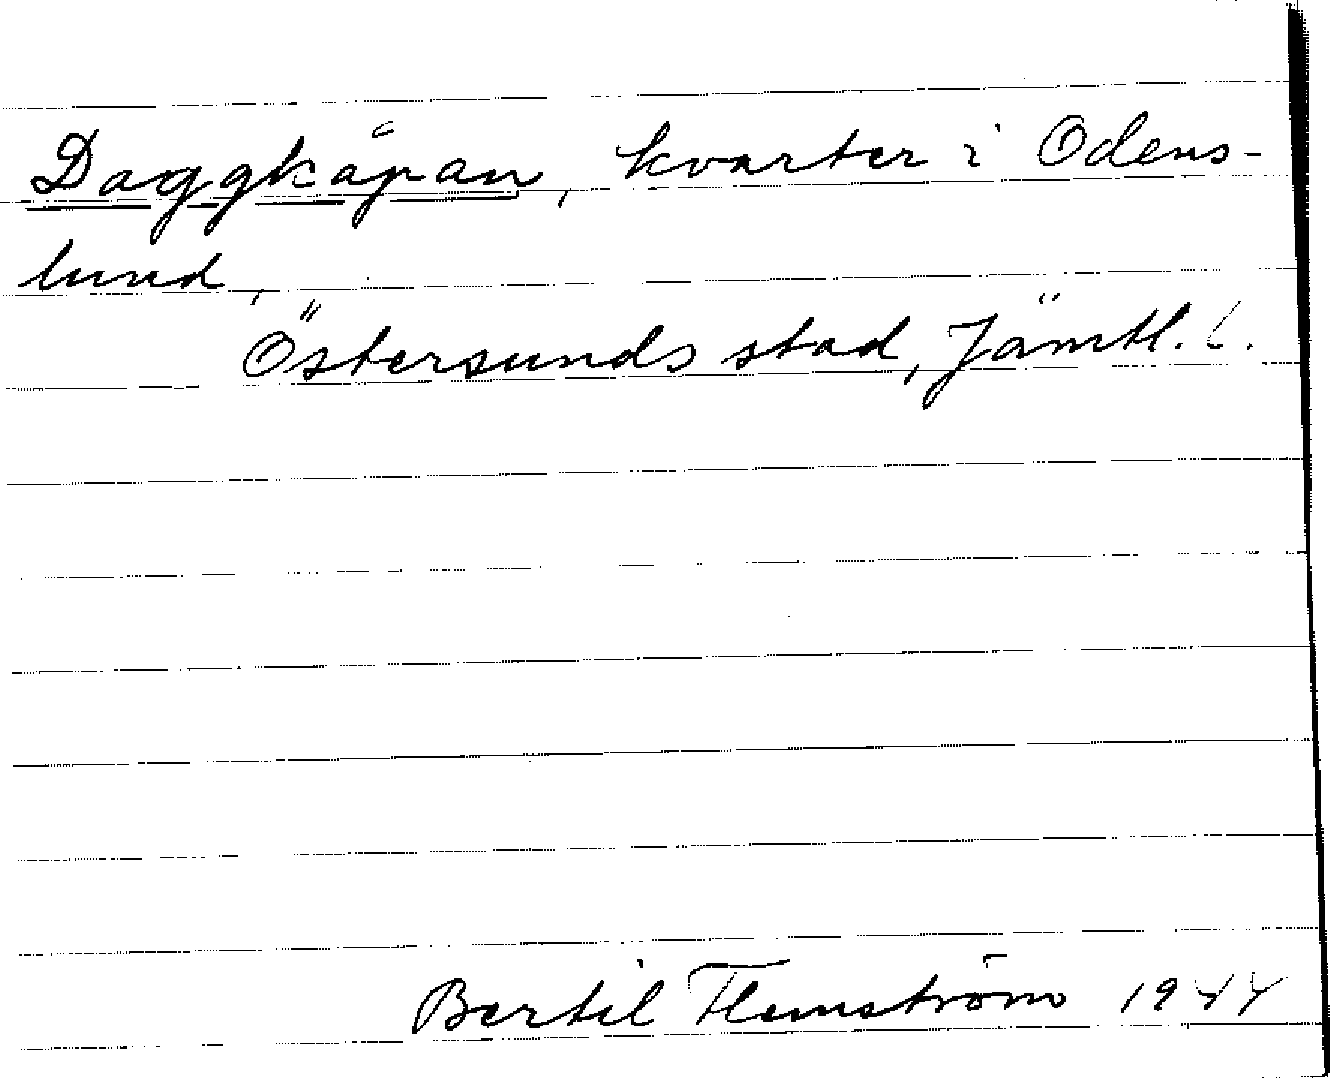 Daggkåpan, kvarter i Odens-
lund,
Östersunds stad, Jämtl. l.
Bertil Flemström 1944